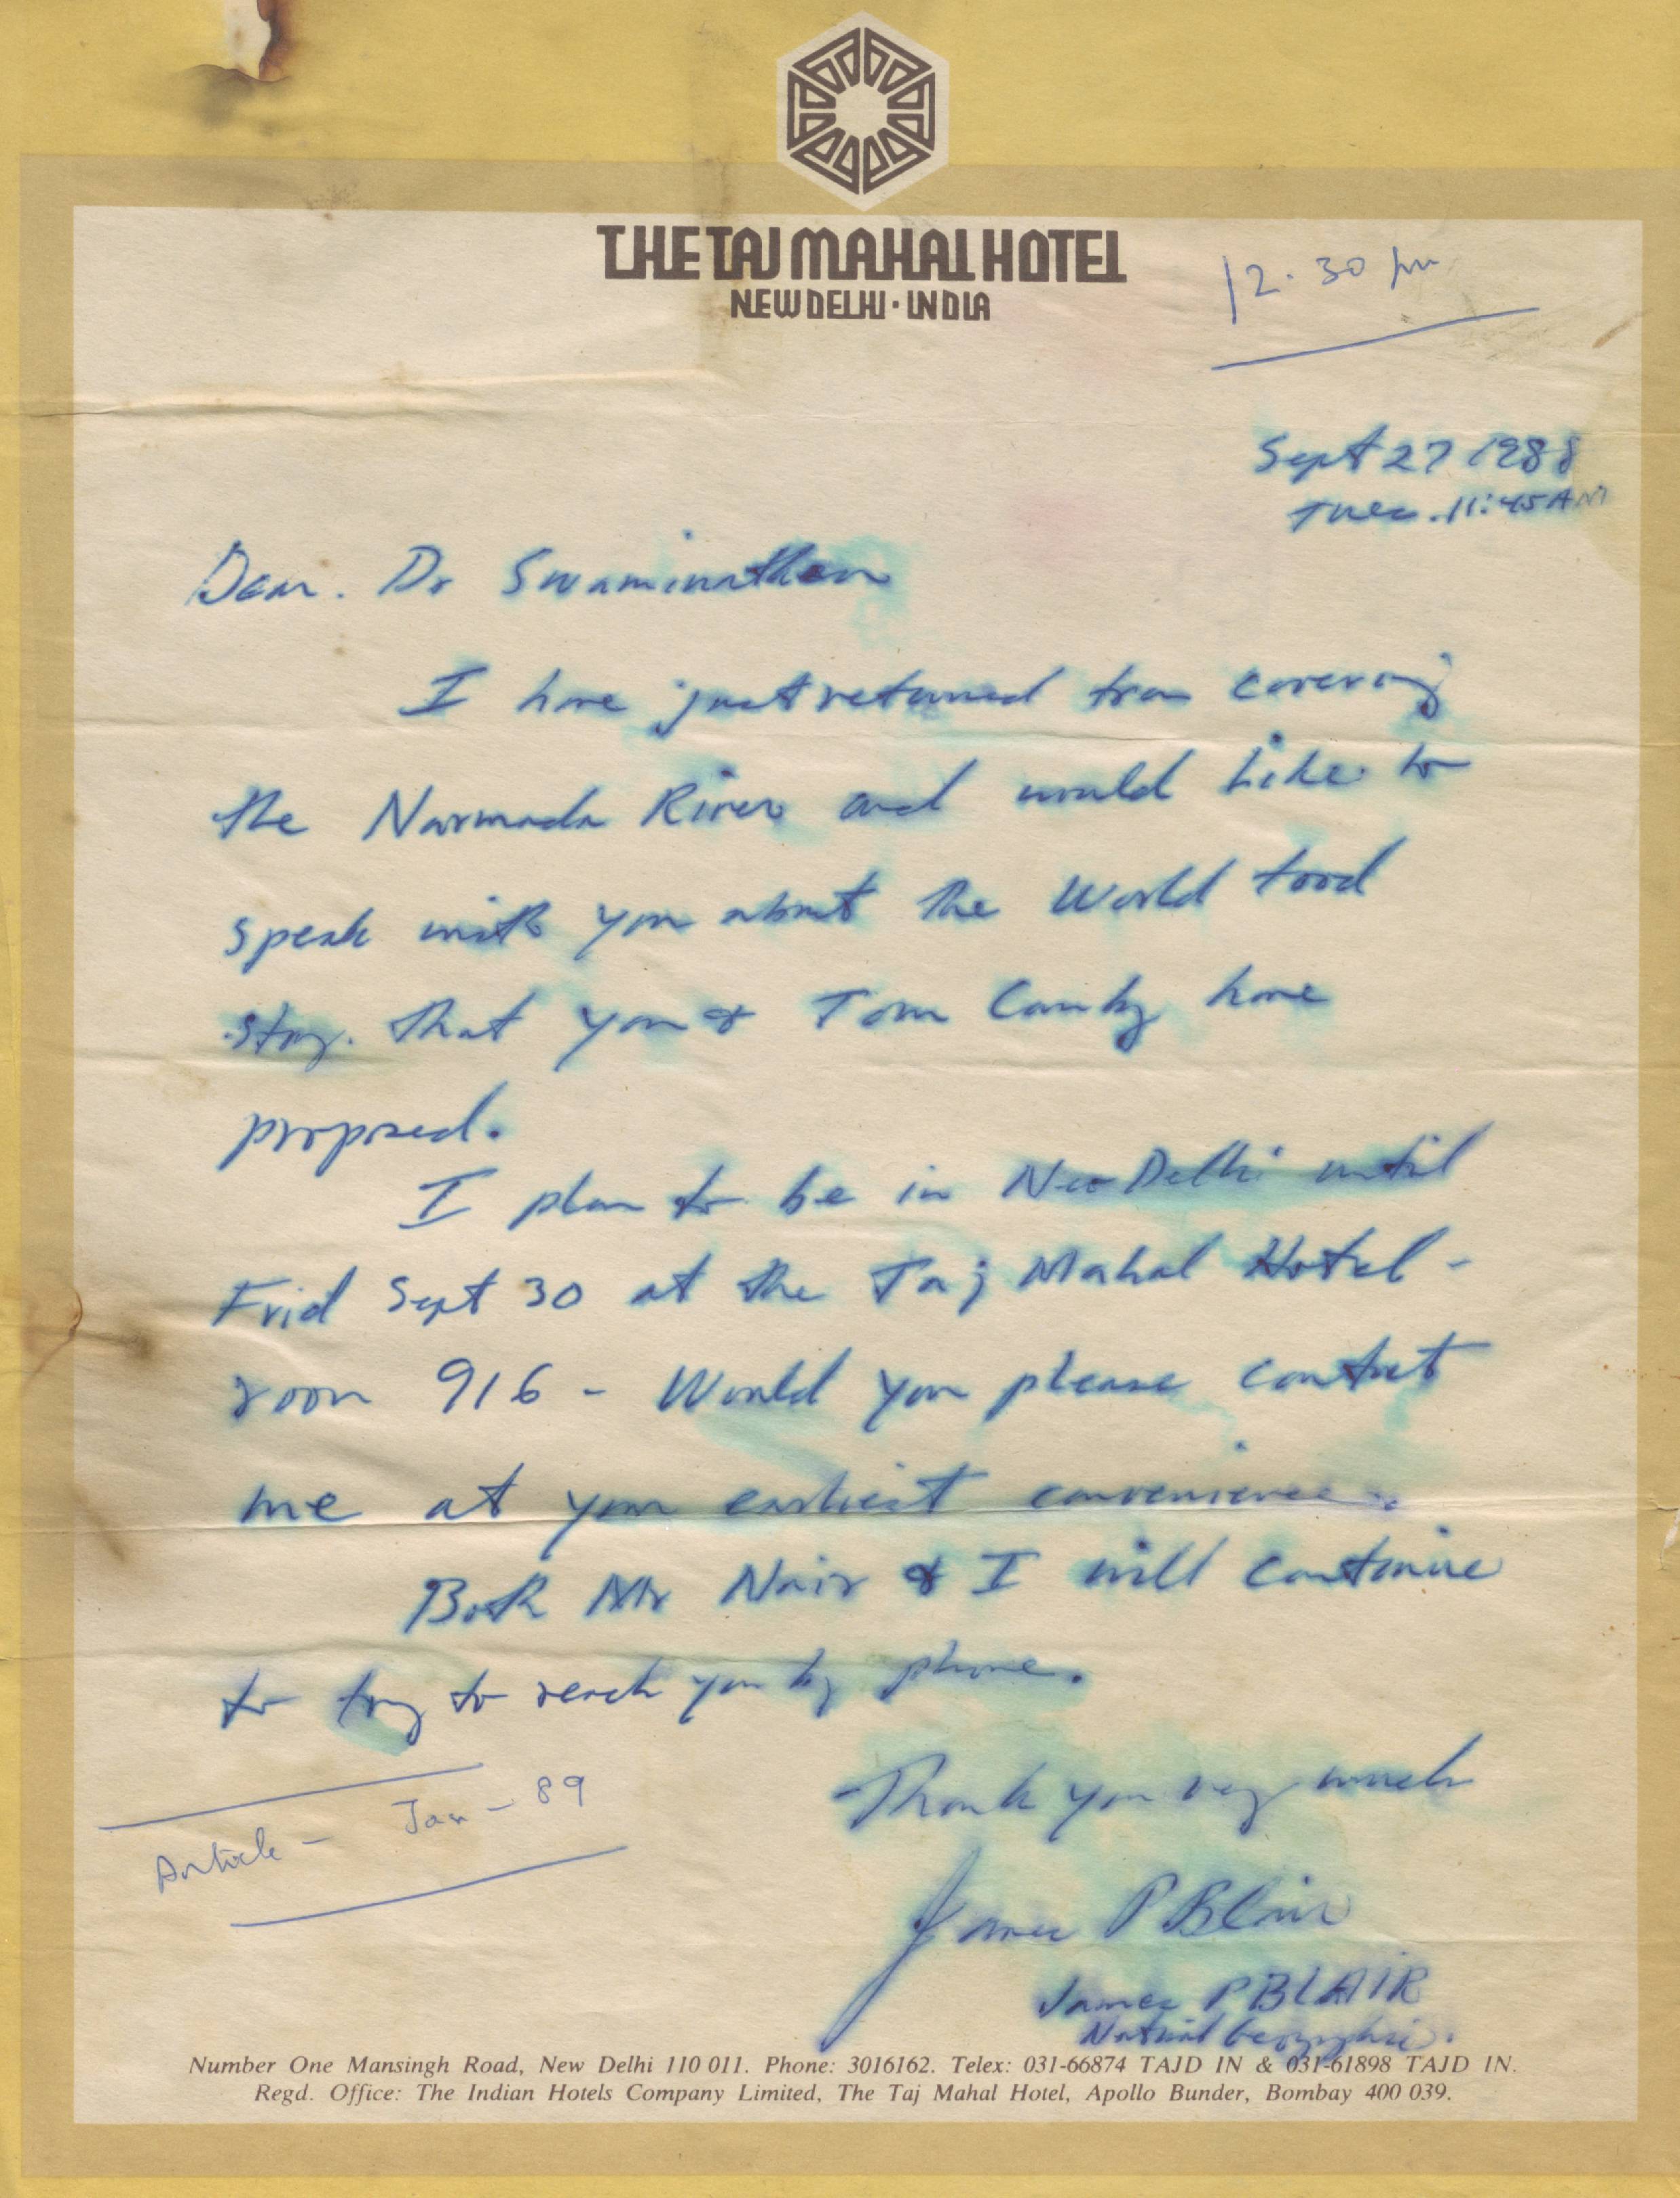 THE TAJ MAHAL HOTEL
NEW DELHI · INDIA
12.30 pm
Sept 27 1988
Tues. 11:45 AM
Dear. Dr Swaminathan
I have just returned from covering
the Narmada River and would like to
speak with you about the World food
story. that you & Tom Canby have
proposed.
I plan to be in New Delhi until
Frid Sept 30 at the Taj Mahal Hotel -
room 916 - Would you please contact
me at your earliest convenience.
Both Mr Nair & I will continue
to try to reach you by phone.
Thank you very much
Article - Jan - 89
James P Blair
James P BLAIR
National Geographic.
Number One Mansingh Road, New Delhi 110 011. Phone: 3016162. Telex: 031-66874 TAJD IN & 031-61898 TAJD IN.
Regd. Office: The Indian Hotels Company Limited, The Taj Mahal Hotel, Apollo Bunder, Bombay 400 039.